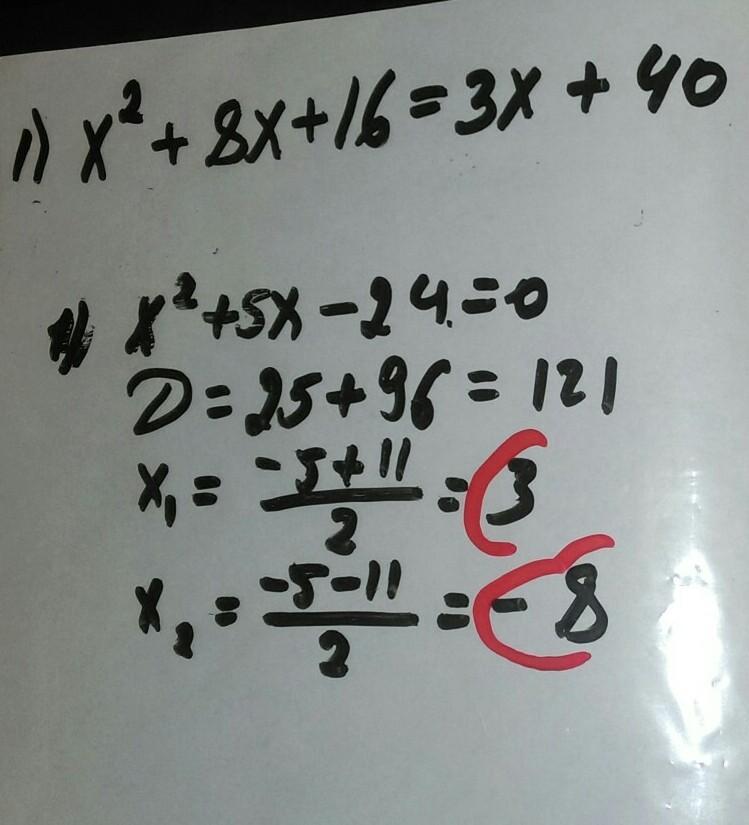 1) x² + 8x + 16 = 3x + 40
1) x² + 5x - 24 = 0
D = 25 + 96 = 121
x₁ = (-5 + 11)/2 = 3
x₂ = (-5 - 11)/2 = -8